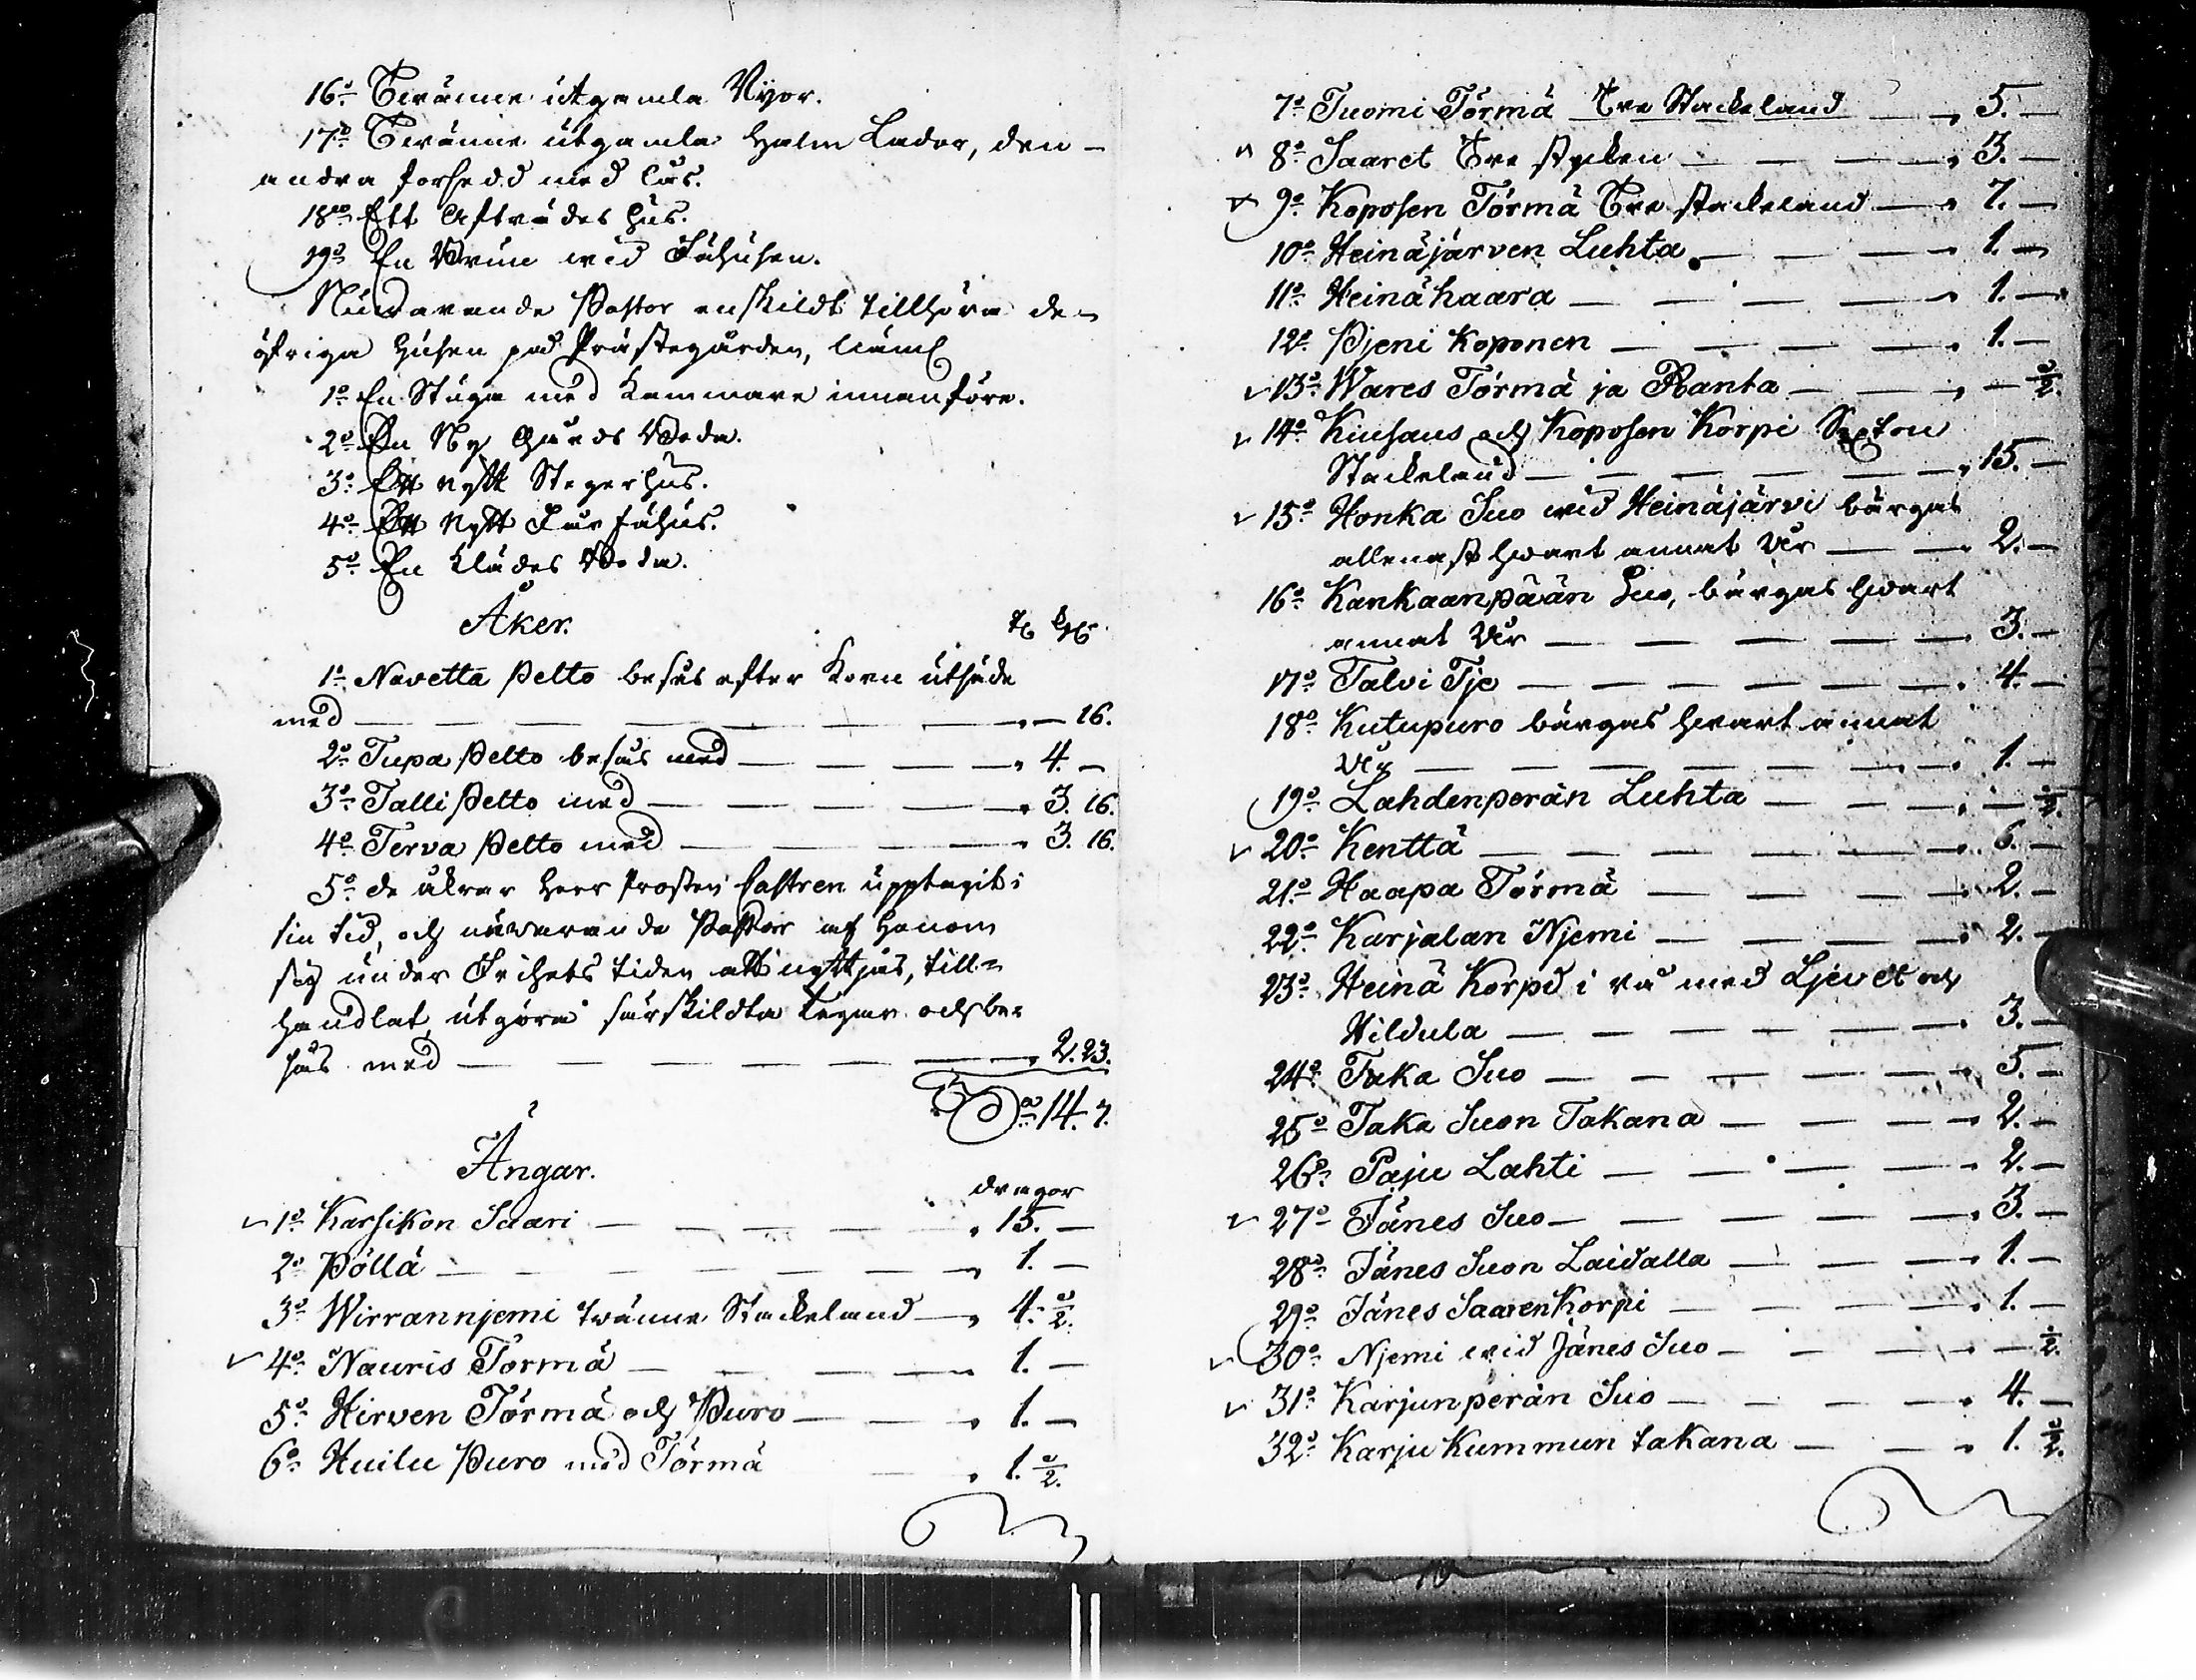 16º Twänne utgamla Ryor.
17º Twänne utgamla Halm Lador, den
andra försedd med lås.
18º Ett Afträdes hus.
19º En Brun wid Fähusen.
Nuwarande Pastor enskildt tillhöra de
öfriga husen på Prästegården, näml
1º En Stuga med Kammare innanföre.
2º En Ny Gårds Boda.
3º Ett nytt Stegerhus.
4º Ett Nytt Får fähus.
5º En Klädes Boda.
Åker.
1º Navetta Pelto besås efter Korn utsäde
med — 16.
2º Tupa Pelto besås med — 4. —
3º Talli Pelto med — 3. 16.
4º Terva Pelto med — 3. 16.
5º de åkrar Herr Prosten Castren upptagit i
sin tid, och nuvarande Pastor af Honom
sig under Frihets tiden att nyttjas, till=
handlat, utgöra särskildta tegar och be=
sås med — 2. 23.
Sa 14. 7.
Ängar.
dragor
1º Karsikon Saari — 15. —
2º Pöllä — 1. —
3º Wirrannjemi twänne Stackeland — 4. ½.
4º Nauris Tormä — 1. —
5º Hirven Törmä och Puro — 1. —
6º Huilu Puro med Törmä 1. ½.
7º Tuomi Törmä Tre Stackeland — 5. —
8º Saaret Tre stycken — 3. —
9º Koposen Törmä Tre stackeland — 7. —
10º Heinäjärven Luhta — 1. —
11º Heinähaara — 1. —
12º Pjeni Koponen — 1. —
13º Wares Törmä ja Ranta — ½.
14º Kiusaus och Koposen Korpi Sexton
Stackeland — 15. —
15º Honka Suo wid Heinäjärvi bärgas
allenast hwart annat År — 2. —
16º Kankaanpään Suo, bärgas hwart
annat År — 3. —
17º Talvi Tje — 4. —
18º Kutupuro bärgas hwart annat
År — 1. —
19º Lahdenperän Luhta — ½.
20º Kenttä — 6. —
21º Haapa Törmä — 2. —
22º Karjalan Njemi — 2. —
23º Heinä Korpd i rå med Ljevet och
Hildula — 3. —
24º Taka Suo — 5. —
25º Taka Suon Takana — 2. —
26º Paju Lahti — 2. —
27º Jänes Suo — 3. —
28º Jänes Suon Laidalla — 1. —
29º Jänes Saaren Korpi — 1. —
30º Njemi wid Jänes Suo — ½.
31º Karjunperän Suo — 4. —
32º Karju Kummun takana — 1. ½.